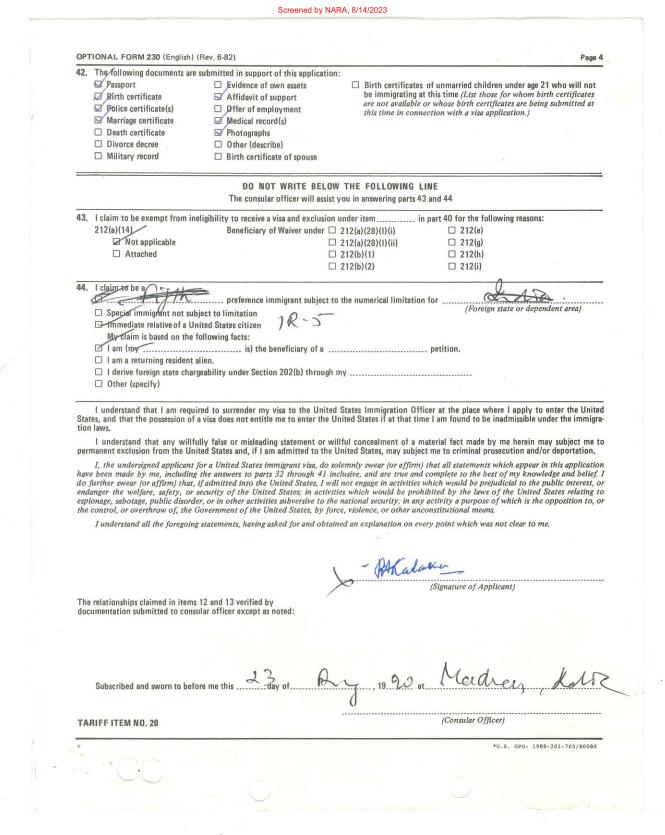 Screened by NARA, 8/14/2023
OPTIONAL FORM 230 (English) (Rev. 6-82) Page 4
42. The following documents are submitted in support of this application:
☑ Passport ☐ Evidence of own assets ☐ Birth certificates of unmarried children under age 21 who will not
☑ Birth certificate ☑ Affidavit of support be immigrating at this time (List those for whom birth certificates
☑ Police certificate(s) ☐ Offer of employment are not available or whose birth certificates are being submitted at
☑ Marriage certificate ☑ Medical record(s) this time in connection with a visa application.)
☐ Death certificate ☑ Photographs
☐ Divorce decree ☐ Other (describe)
☐ Military record ☐ Birth certificate of spouse
DO NOT WRITE BELOW THE FOLLOWING LINE
The consular officer will assist you in answering parts 43 and 44
43. I claim to be exempt from ineligibility to receive a visa and exclusion under item in part 40 for the following reasons:
212(a)(14) Beneficiary of Waiver under ☐ 212(a)(28)(I)(i) ☐ 212(e)
☑ Not applicable ☐ 212(a)(28)(I)(ii) ☐ 212(g)
☐ Attached ☐ 212(b)(1) ☐ 212(h)
☐ 212(b)(2) ☐ 212(i)
44. I claim to be a
preference immigrant subject to the numerical limitation for
(Foreign state or dependent area)
☐ Special immigrant not subject to limitation
☑ Immediate relative of a United States citizen IR-5
My claim is based on the following facts:
☑ I am (my is) the beneficiary of a petition.
☐ I am a returning resident alien.
☐ I derive foreign state chargeability under Section 202(b) through my
☐ Other (specify)
I understand that I am required to surrender my visa to the United States Immigration Officer at the place where I apply to enter the United
States, and that the possession of a visa does not entitle me to enter the United States if at that time I am found to be inadmissible under the immigra-
tion laws.
I understand that any willfully false or misleading statement or willful concealment of a material fact made by me herein may subject me to
permanent exclusion from the United States and, if I am admitted to the United States, may subject me to criminal prosecution and/or deportation.
I, the undersigned applicant for a United States immigrant visa, do solemnly swear (or affirm) that all statements which appear in this application
have been made by me, including the answers to parts 32 through 41 inclusive, and are true and complete to the best of my knowledge and belief. I
do further swear (or affirm) that, if admitted into the United States, I will not engage in activities which would be prejudicial to the public interest, or
endanger the welfare, safety, or security of the United States; in activities which would be prohibited by the laws of the United States relating to
espionage, sabotage, public disorder, or in other activities subversive to the national security; in any activity a purpose of which is the opposition to, or
the control, or overthrow of, the Government of the United States, by force, violence, or other unconstitutional means.
I understand all the foregoing statements, having asked for and obtained an explanation on every point which was not clear to me.
(Signature of Applicant)
The relationships claimed in items 12 and 13 verified by
documentation submitted to consular officer except as noted:
Subscribed and sworn to before me this 23 day of Aug, 1990 at Madras,
(Consular Officer)
TARIFF ITEM NO. 20
*U.S. GPO: 1988-201-760/80080